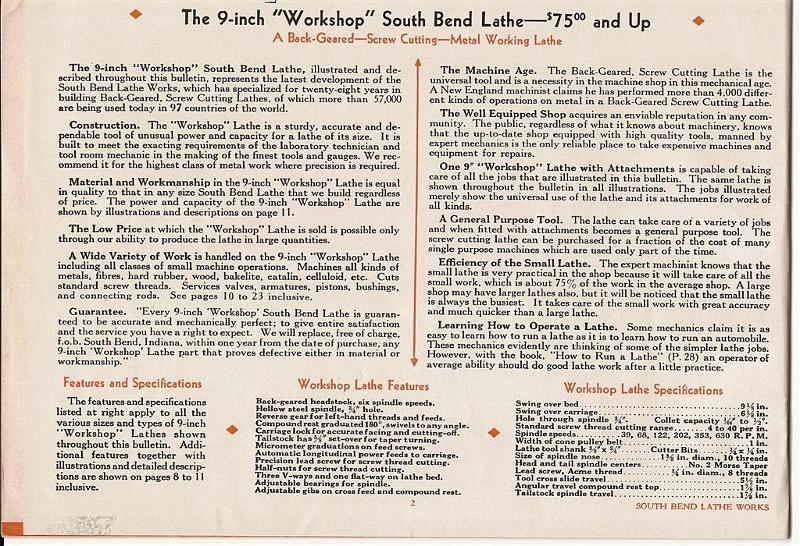 The 9-inch "Workshop" South Bend Lathe—$75⁰⁰ and Up
A Back-Geared—Screw Cutting—Metal Working Lathe
The 9-inch "Workshop" South Bend Lathe, illustrated and de-
scribed throughout this bulletin, represents the latest development of the
South Bend Lathe Works, which has specialized for twenty-eight years in
building Back-Geared, Screw Cutting Lathes, of which more than 57,000
are being used today in 97 countries of the world.
Construction. The "Workshop" Lathe is a sturdy, accurate and de-
pendable tool of unusual power and capacity for a lathe of its size. It is
built to meet the exacting requirements of the laboratory technician and
tool room mechanic in the making of the finest tools and gauges. We rec-
ommend it for the highest class of metal work where precision is required.
Material and Workmanship in the 9-inch "Workshop" Lathe is equal
in quality to that in any size South Bend Lathe that we build regardless
of price. The power and capacity of the 9-inch "Workshop" Lathe are
shown by illustrations and descriptions on page 11.
The Low Price at which the "Workshop" Lathe is sold is possible only
through our ability to produce the lathe in large quantities.
A Wide Variety of Work is handled on the 9-inch "Workshop" Lathe
including all classes of small machine operations. Machines all kinds of
metals, fibres, hard rubber, wood, bakelite, catalin, celluloid, etc. Cuts
standard screw threads. Services valves, armatures, pistons, bushings,
and connecting rods. See pages 10 to 23 inclusive.
Guarantee. "Every 9-inch 'Workshop' South Bend Lathe is guaran-
teed to be accurate and mechanically perfect; to give entire satisfaction
and the service you have a right to expect. We will replace, free of charge,
f.o.b. South Bend, Indiana, within one year from the date of purchase, any
9-inch 'Workshop' Lathe part that proves defective either in material or
workmanship."
The Machine Age. The Back-Geared, Screw Cutting Lathe is the
universal tool and is a necessity in the machine shop in this mechanical age.
A New England machinist claims he has performed more than 4,000 differ-
ent kinds of operations on metal in a Back-Geared Screw Cutting Lathe.
The Well Equipped Shop acquires an enviable reputation in any com-
munity. The public, regardless of what it knows about machinery, knows
that the up-to-date shop equipped with high quality tools, manned by
expert mechanics is the only reliable place to take expensive machines and
equipment for repairs.
One 9" "Workshop" Lathe with Attachments is capable of taking
care of all the jobs that are illustrated in this bulletin. The same lathe is
shown throughout the bulletin in all illustrations. The jobs illustrated
merely show the universal use of the lathe and its attachments for work of
all kinds.
A General Purpose Tool. The lathe can take care of a variety of jobs
and when fitted with attachments becomes a general purpose tool. The
screw cutting lathe can be purchased for a fraction of the cost of many
single purpose machines which are used only part of the time.
Efficiency of the Small Lathe. The expert machinist knows that the
small lathe is very practical in the shop because it will take care of all the
small work, which is about 75% of the work in the average shop. A large
shop may have larger lathes also, but it will be noticed that the small lathe
is always the busiest. It takes care of the small work with great accuracy
and much quicker than a large lathe.
Learning How to Operate a Lathe. Some mechanics claim it is as
easy to learn how to run a lathe as it is to learn how to run an automobile.
These mechanics evidently are thinking of some of the simpler lathe jobs.
However, with the book, "How to Run a Lathe" (P. 28) an operator of
average ability should do good lathe work after a little practice.
Features and Specifications
The features and specifications
listed at right apply to all the
various sizes and types of 9-inch
"Workshop" Lathes shown
throughout this bulletin. Addi-
tional features together with
illustrations and detailed descrip-
tions are shown on pages 8 to 11
inclusive.
Workshop Lathe Features
Back-geared headstock, six spindle speeds.
Hollow steel spindle, ¾" hole.
Reverse gear for left-hand threads and feeds.
Compound rest graduated 180°, swivels to any angle.
Carriage lock for accurate facing and cutting-off.
Tailstock has set-over for taper turning.
Micrometer graduations on feed screws.
Automatic longitudinal power feeds to carriage.
Precision lead screw for screw thread cutting.
Half-nuts for screw thread cutting.
Three V-ways and one flat-way on lathe bed.
Adjustable bearings for spindle.
Adjustable gibs on cross feed and compound rest.
Workshop Lathe Specifications
Swing over bed 9¼ in.
Swing over carriage in.
Hole through spindle ¾". Collet capacity to ½".
Standard screw thread cutting range 4 to 40 per in.
Spindle speeds 39, 68, 122, 202, 353, 630 R. P. M.
Width of cone pulley belt 1 in.
Lathe tool shank Cutter Bits in.
Size of spindle nose in. diam., 10 threads
Head and tail spindle centers No. 2 Morse Taper
Lead screw, Acme thread ¾ in. diam., 8 threads
Tool cross slide travel 5½ in.
Angular travel compound rest top in.
Tailstock spindle travel in.
2
SOUTH BEND LATHE WORKS